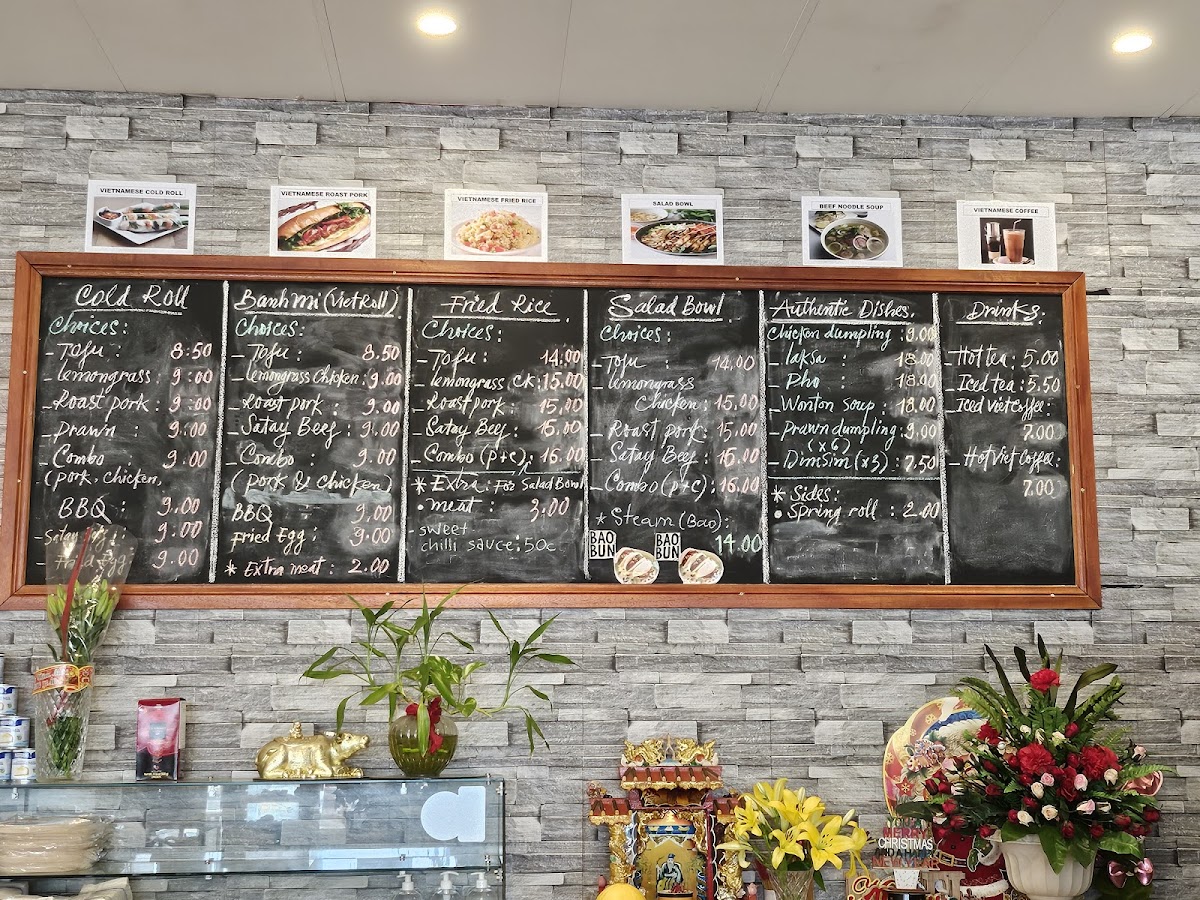 VIETNAMESE COLD ROLL
VIETNAMESE ROAST PORK
VIETNAMESE FRIED RICE
SALAD BOWL
BEEF NOODLE SOUP
VIETNAMESE COFFEE
Cold Roll
Choices:
- Tofu : 8.50
- lemongrass : 9:00
- Roast pork : 9:00
- Prawn : 9:00
- Combo 9.00
(pork, chicken,
BBQ : 9.00
9.00
- Fried Egg 9.00
Banh mi (Viet Roll)
Choices:
- Tofu : 8.50
- lemongrass Chicken : 9.00
- Roast pork : 9.00
- Satay Beef : 9.00
- Combo : 9.00
(pork & chicken)
BBQ : 9.00
Fried Egg : 9.00
* Extra meat : 2.00
Fried Rice
Choices:
- Tofu : 14.00
- lemongrass CK: 15.00
- Roast pork : 15.00
- Satay Beef : 15.00
- Combo (p+c): 16.00
* Extra : For Salad Bowl
• meat : 3.00
- sweet
chilli sauce: 50c
Salad Bowl
Choices:
- Tofu : 14.00
- lemongrass
Chicken : 15.00
- Roast pork : 15.00
- Satay Beef : 15.00
- Combo (p+c): 16.00
* Steam (Bao):
BAO
BUN
BAO
BUN
14.00
Authentic Dishes.
Chicken dumpling : 9.00
- laksa : 18.00
- Pho : 18.00
- Wonton Soup : 18.00
- Prawn dumpling : 9.00
(x6)
- Dim Sim (x3) : 7.50
* Sides:
• Spring roll : 2.00
Drinks:
- Hot tea : 5.00
- Iced tea : 5.50
- Iced Viet Coffee :
7.00
- Hot Viet Coffee :
7.00
MERRY
CHRISTMAS